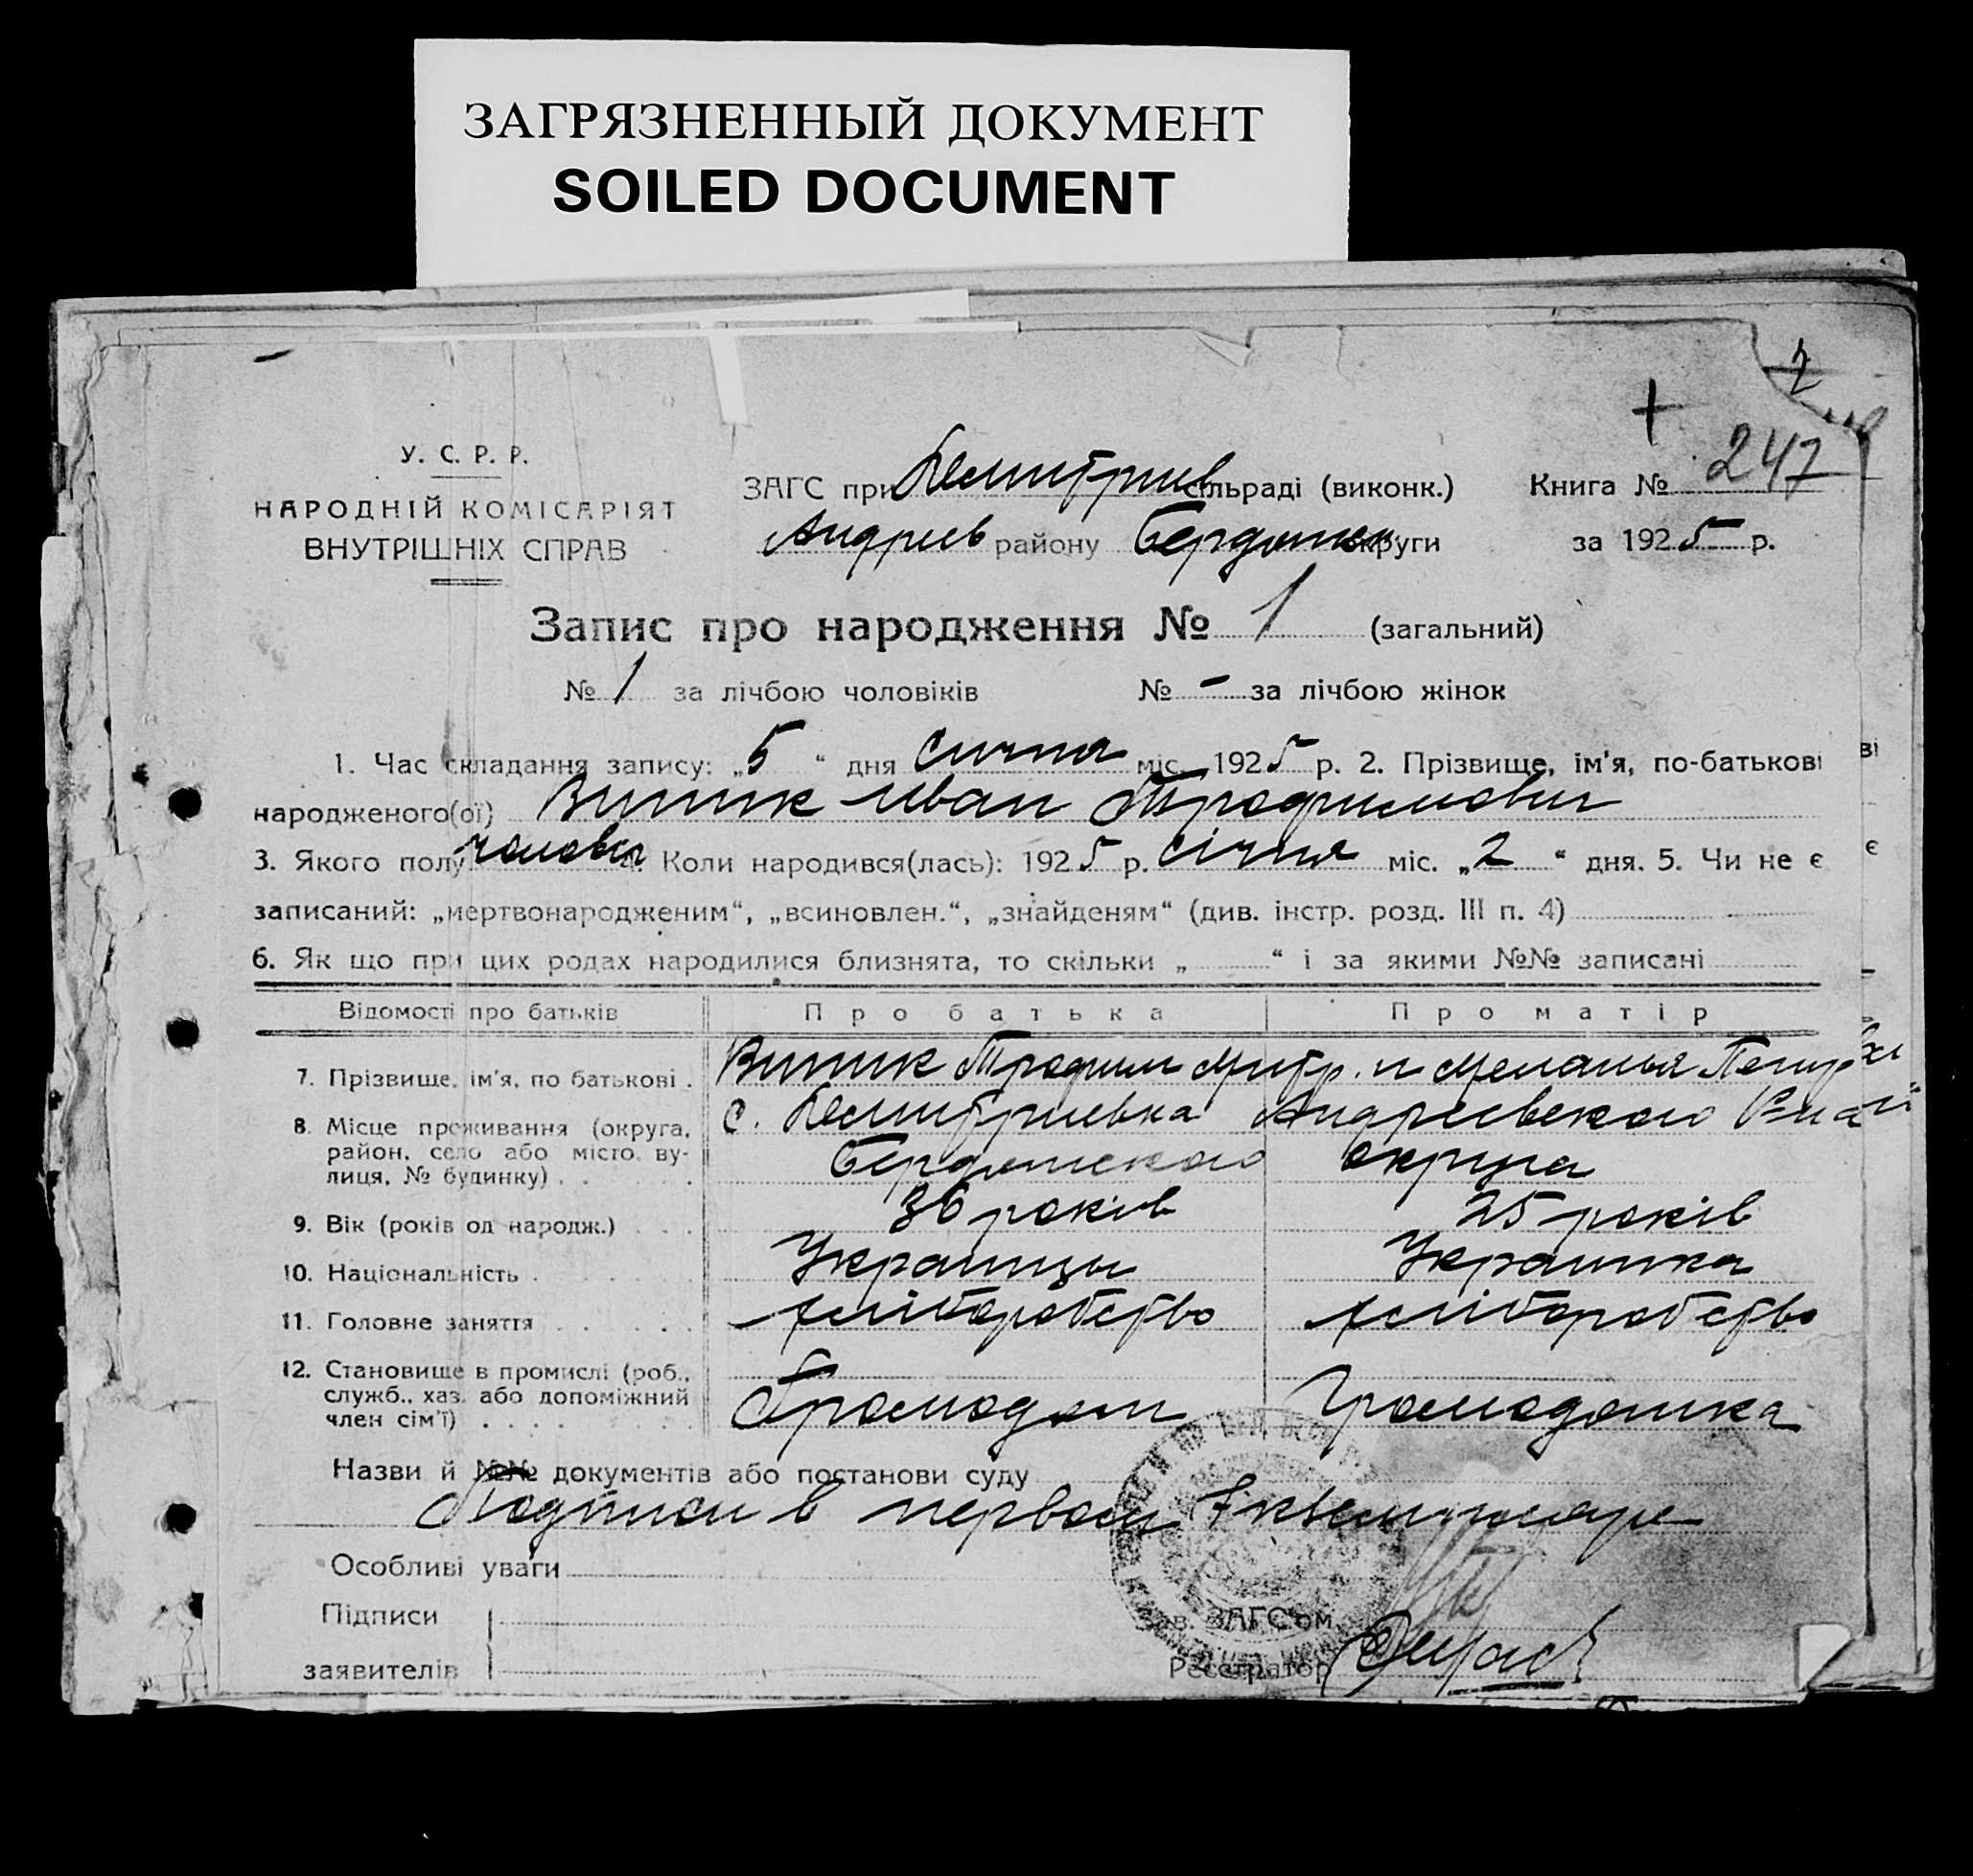 ЗАГРЯЗНЕННЫЙ ДОКУМЕНТ
SOILED DOCUMENT
2
+
247
У. С. Р. Р.
НАРОДНІЙ КОМІСАРІЯТ
ВНУТРІШНІХ СПРАВ
ЗАГС при Демитриев сільраді (виконк.)
Андреев району Бердянск округи
Книга № 247
за 1925 р.
Запис про народження № 1 (загальний)
№ 1 за лічбою чоловіків № - за лічбою жінок
1. Час складання запису: „5“ дня січня міс. 1925 р. 2. Прізвище, ім'я, по-батькові
народженого(ої) Виник Иван Трофимович
3. Якого полу чоловіч. Коли народився(лась): 1925 р. січня міс. „2“ дня. 5. Чи не є
записаний: „мертвонародженим“, „всиновлен.“, „знайденям“ (див. інстр. розд. III п. 4)
6. Як що при цих родах народилися близнята, то скільки „ “ і за якими №№ записані
Відомості про батьків Про батька Про матір
7. Прізвище, ім'я, по батькові. Виник Трофим Митр. и Меланья
8. Місце проживання (округа, район, село або місто, вулиця, № будинку) с. Демитриевка Андреевского
Бердянского округа
9. Вік (років од народж.) 36 років 25 років
10. Національність Украинцы Украинка
11. Головне заняття хліборобство хліборобство
12. Становище в промислі (роб., служб., хаз. або допоміжний член сім'ї) Громодян Громодянка
Назви й №№ документів або постанови суду
Подписи в первом Экземпляре
Особливі уваги
Підписи
заявителів
Зав. ЗАГС'ом
Реєстратор